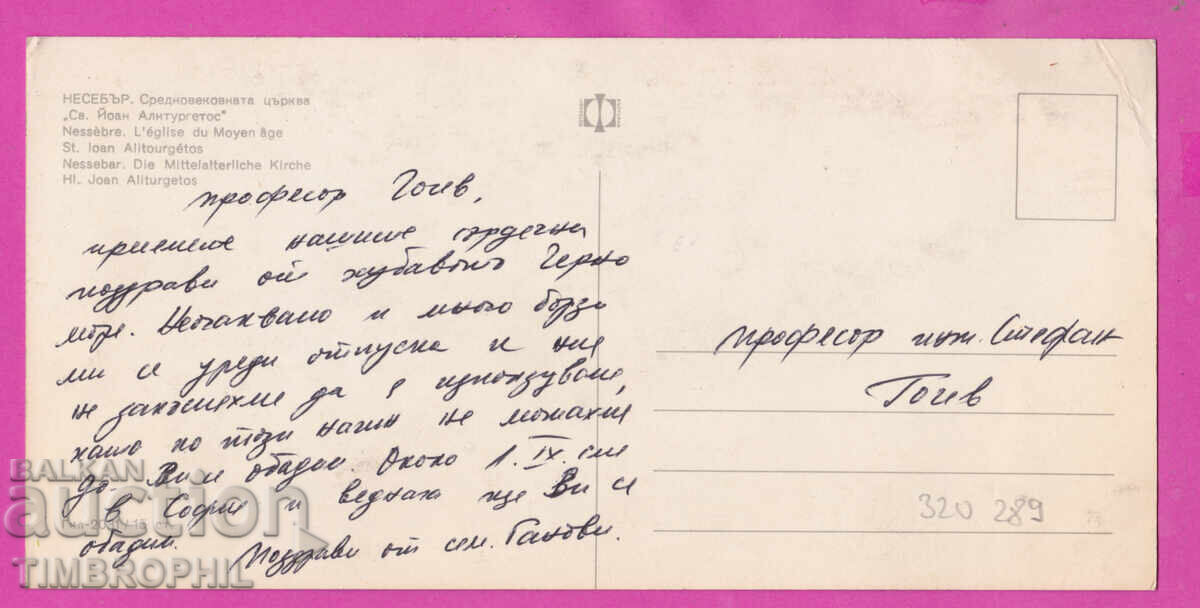 НЕСЕБЪР. Средновековната църква
„Св. Йоан Алитургетос"
Nessèbre. L'église du Moyen âge
St. Ioan Alitourgétos
Nessebar. Die Mittelalterliche Kirche
Hl. Joan Aliturgetos
професор Гочев,
приемете нашите сърдечни
поздрави от хубавото Черно
море. Неочаквано и много бързо
ми се уреди отпуска и ние
не закъсняхме да я използуваме,
като по този начин не можахме
да Ви се обадим. Около 1.IX. сме
в София и веднага ще Ви се
обадим. Поздрави от сем. Ганови.
професор инж. Стефан
Гочев
320 289
BALKAN
auction
TIMBROPHIL